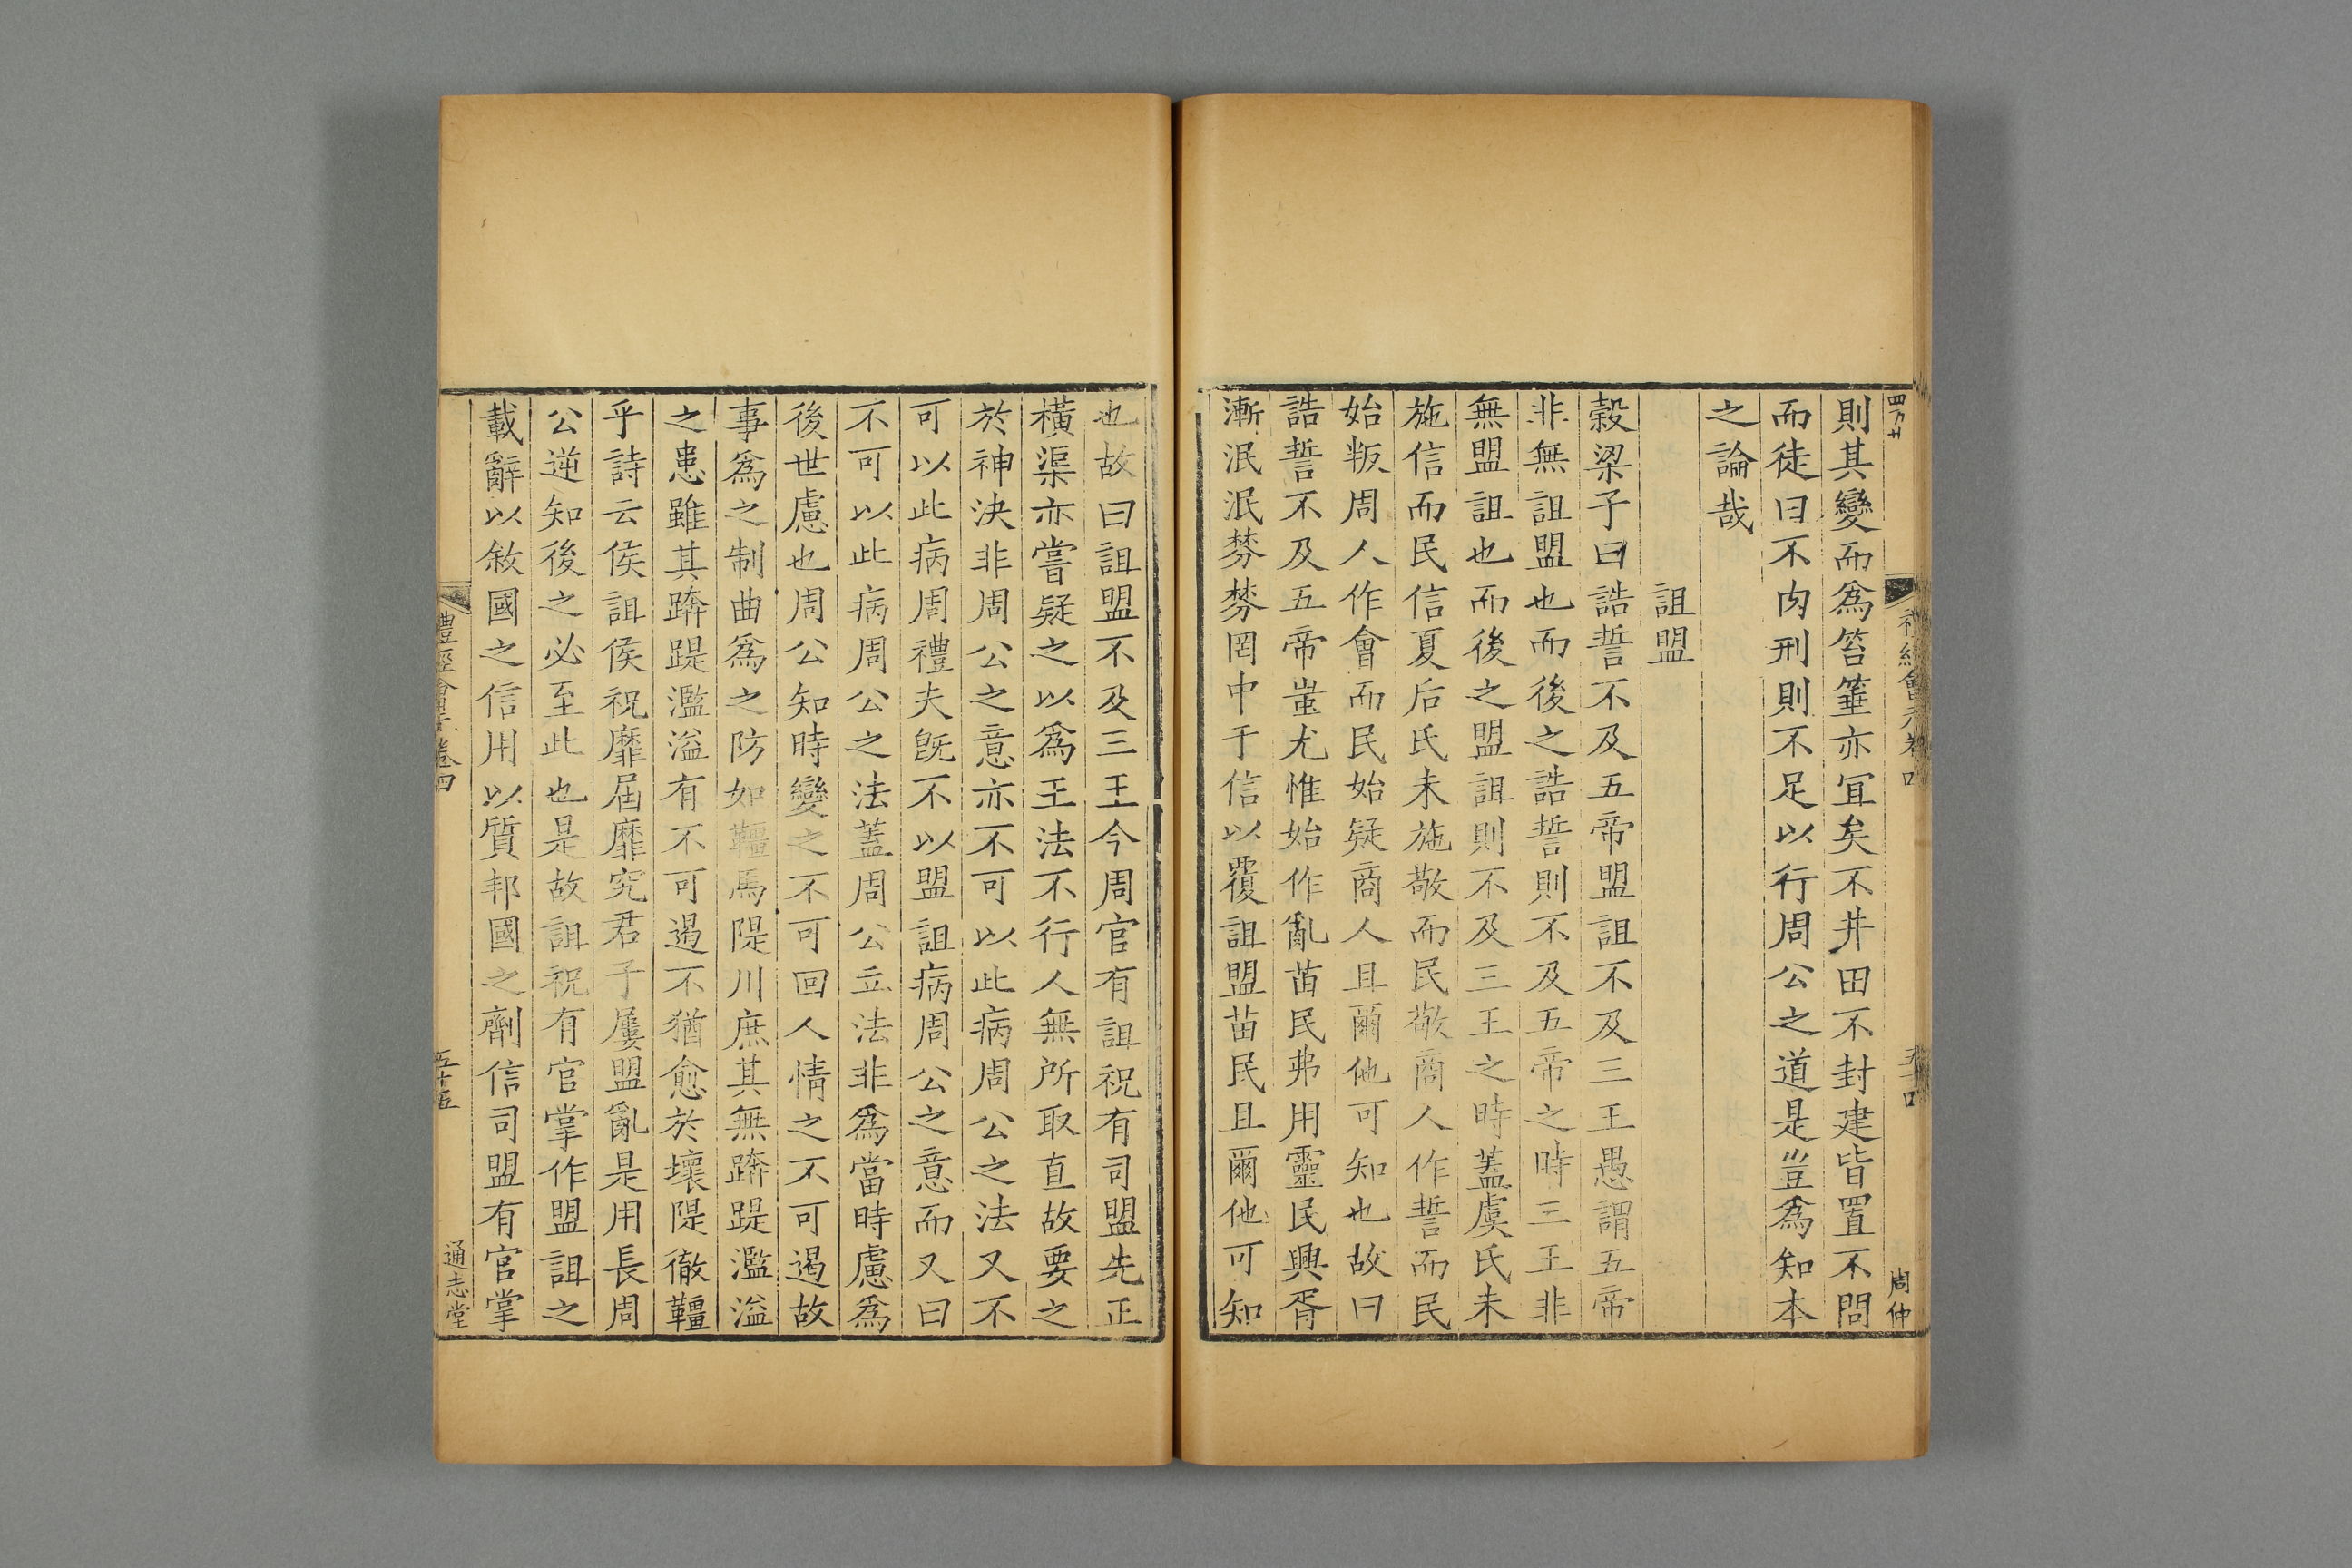 則其變而爲笞箠亦宜矣不井田不封建皆置不問
而徒曰不肉刑則不足以行周公之道是豈爲知本
之論哉
詛盟
穀梁子曰誥誓不及五帝盟詛不及三王愚謂五帝
非無詛盟也而後之誥誓則不及五帝之時三王非
無盟詛也而後之盟詛則不及三王之時蓋虞氏未
施信而民信夏后氏未施敬而民敬商人作誓而民
始叛周人作會而民始疑商人且爾他可知也故曰
誥誓不及五帝蚩尤惟始作亂苗民弗用靈民興胥
漸泯泯棼棼罔中于信以覆詛盟苗民且爾他可知
周仲
也故曰詛盟不及三王今周官有詛祝有司盟先正
橫渠亦嘗疑之以爲王法不行人無所取直故要之
於神決非周公之意亦不可以此病周公之法又不
可以此病周禮夫旣不以盟詛病周公之意而又曰
不可以此病周公之法蓋周公立法非爲當時慮爲
後世慮也周公知時變之不可回人情之不可遏故
事爲之制曲爲之防如韁馬隄川庶其無踶踶濫溢
之患雖其踶踶濫溢有不可遏不猶愈於壞隄徹韁
乎詩云侯詛侯祝靡屆靡究君子屢盟亂是用長周
公逆知後之必至此也是故詛祝有官掌作盟詛之
載辭以敘國之信用以質邦國之劑信司盟有官掌
禮經會元卷四
五十五
通志堂